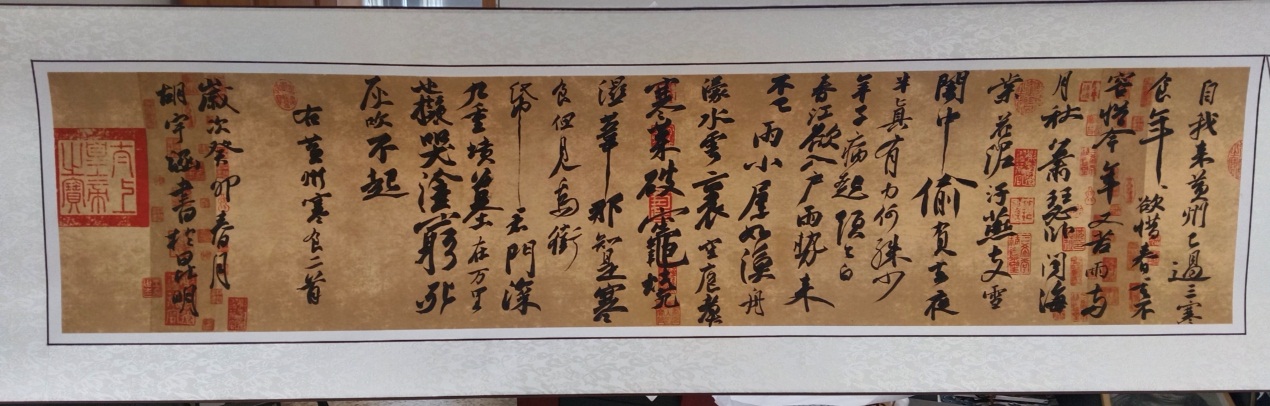 自我来黄州已過三寒
食年〻欲惜春〻去不
容惜今年又苦雨兩
月秋蕭瑟卧聞海
棠花泥汙燕支雪
闇中偷負去夜
半真有力何殊少
年子病起頭已白
春江欲入户雨勢来
不已雨小屋如漁舟
濛〻水雲裏空庖煮
寒菜破竈燒
濕葦那知是寒
食但見烏銜
帋君門深
九重墳墓在万里
也擬哭塗窮死
灰吹不起
右黄州寒食二首
歲次癸卯春月
胡宇書於昆明
太上皇帝之寶